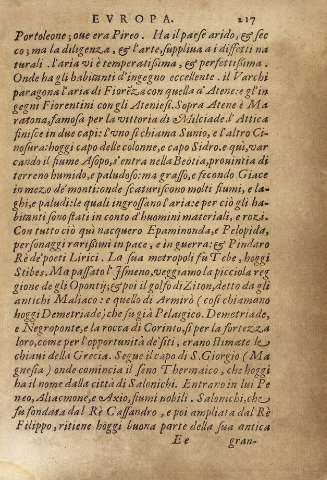 EVROPA. 217
Portoleone; oue era Pireo. Ha il paese arido, & sec
co; ma la diligenza, & l'arte, suppliua a i diffetti na
turali. l'aria vi è temperatissima, & perfettissima.
Onde ha gli habitanti d'ingegno eccellente. il Varchi
paragona l'aria di Fiorēza con quella d'Atene: e gl'in
gegni Fiorentini con gli Ateniesi. Sopra Atene è Ma
ratona, famosa per la vittoria di Milciade. l'Attica
finisce in due capi: l'vno si chiama Sunio, e l'altro Ci-
nosura: hoggi capo delle colonne, e capo Sidro. e quì, var
cando il fiume Asopo, s'entra nella Beotia, prouintia di
terreno humido, e paludoso: ma grasso, e fecondo Giace
in mezo de' monti: onde scaturiscono molti fiumi, e la-
ghi, e paludi: le quali ingrossano l'aria: e per ciò gli ha-
bitanti sono stati in conto d'huomini materiali, e rozi.
Con tutto ciò quì nacquero Epaminonda, e Pelopida,
personaggi rarissimi in pace, e in guerra: & Pindaro
Rè de' poeti Lirici. La sua metropoli fu Tebe, hoggi
Stibes. Ma passato l'Ismeno, veggiamo la picciola reg
gione de gli Opontij; & poi il golfo di Ziton, detto da gli
antichi Maliaco: e quello di Armirò (così chiamano
hoggi Demetriade) che fu già Pelasgico. Demetriade,
e Negroponte, e la rocca di Corinto, sì per la fortezza
loro, come per l'opportunità de' siti, erano stimate le
chiaui della Grecia. Segue il capo di S. Giorgio (Ma
gnesia) onde comincia il seno Thermaico, che hoggi
ha il nome dalla città di Salonichi. Entrano in lui Pe
neo, Aliacmone, e Axio, fiumi nobili. Salonichi, che
fu fondata dal Rè Cassandro, e poi ampliata dal Rè
Filippo, ritiene hoggi buona parte della sua antica
Ee gran-